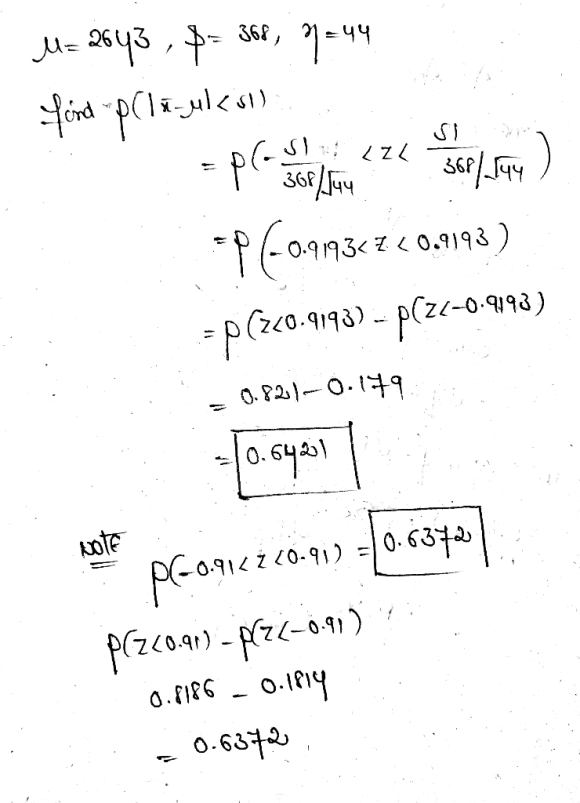 μ = 2643, s = 368, n = 44
find p(|x̄-μ| < 51)
= p(-51/(368/√44) < z < 51/(368/√44))
= p(-0.9193 < z < 0.9193)
= p(z<0.9193) - p(z<-0.9193)
= 0.821 - 0.179
= 0.6421
NOTE
p(-0.91 < z < 0.91) = 0.6372
p(z<0.91) - p(z<-0.91)
0.8186 - 0.1814
= 0.6372